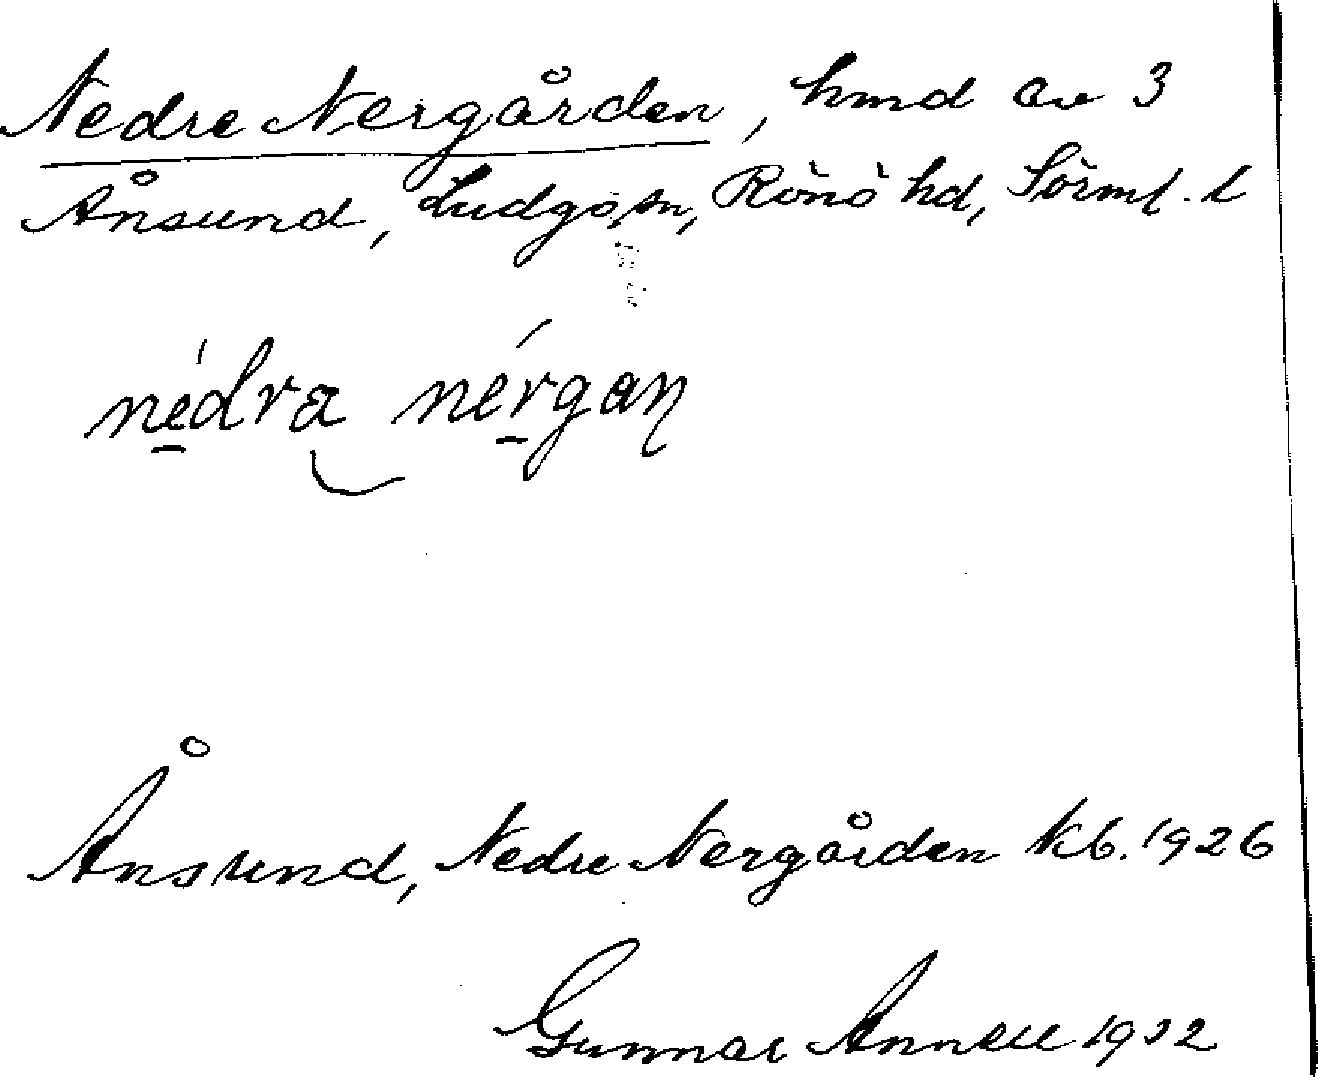 Nedre Nergården, hmd av 3
Ånsund, Ludgo sn, Rönö hd, Sörml. l
nédra nérgaņ
Ånsund, Nedre Nergården kb. 1926
Gunnar Annell 1932